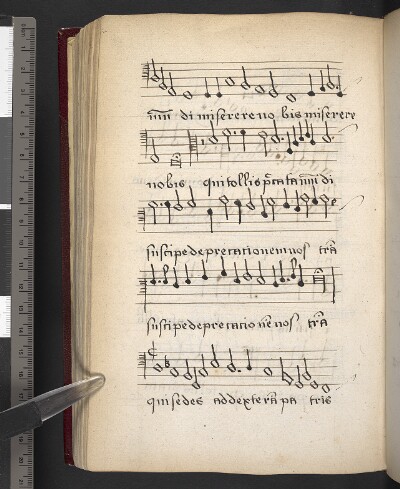 mu̅di di miserere no bis miserere
nobis qui tollis p̅cata mu̅di
suscipe deprecationem nos tra̅
suscipe deprecatio ne̅ nos tra̅
qui sedes ad dextera̅ pa tris